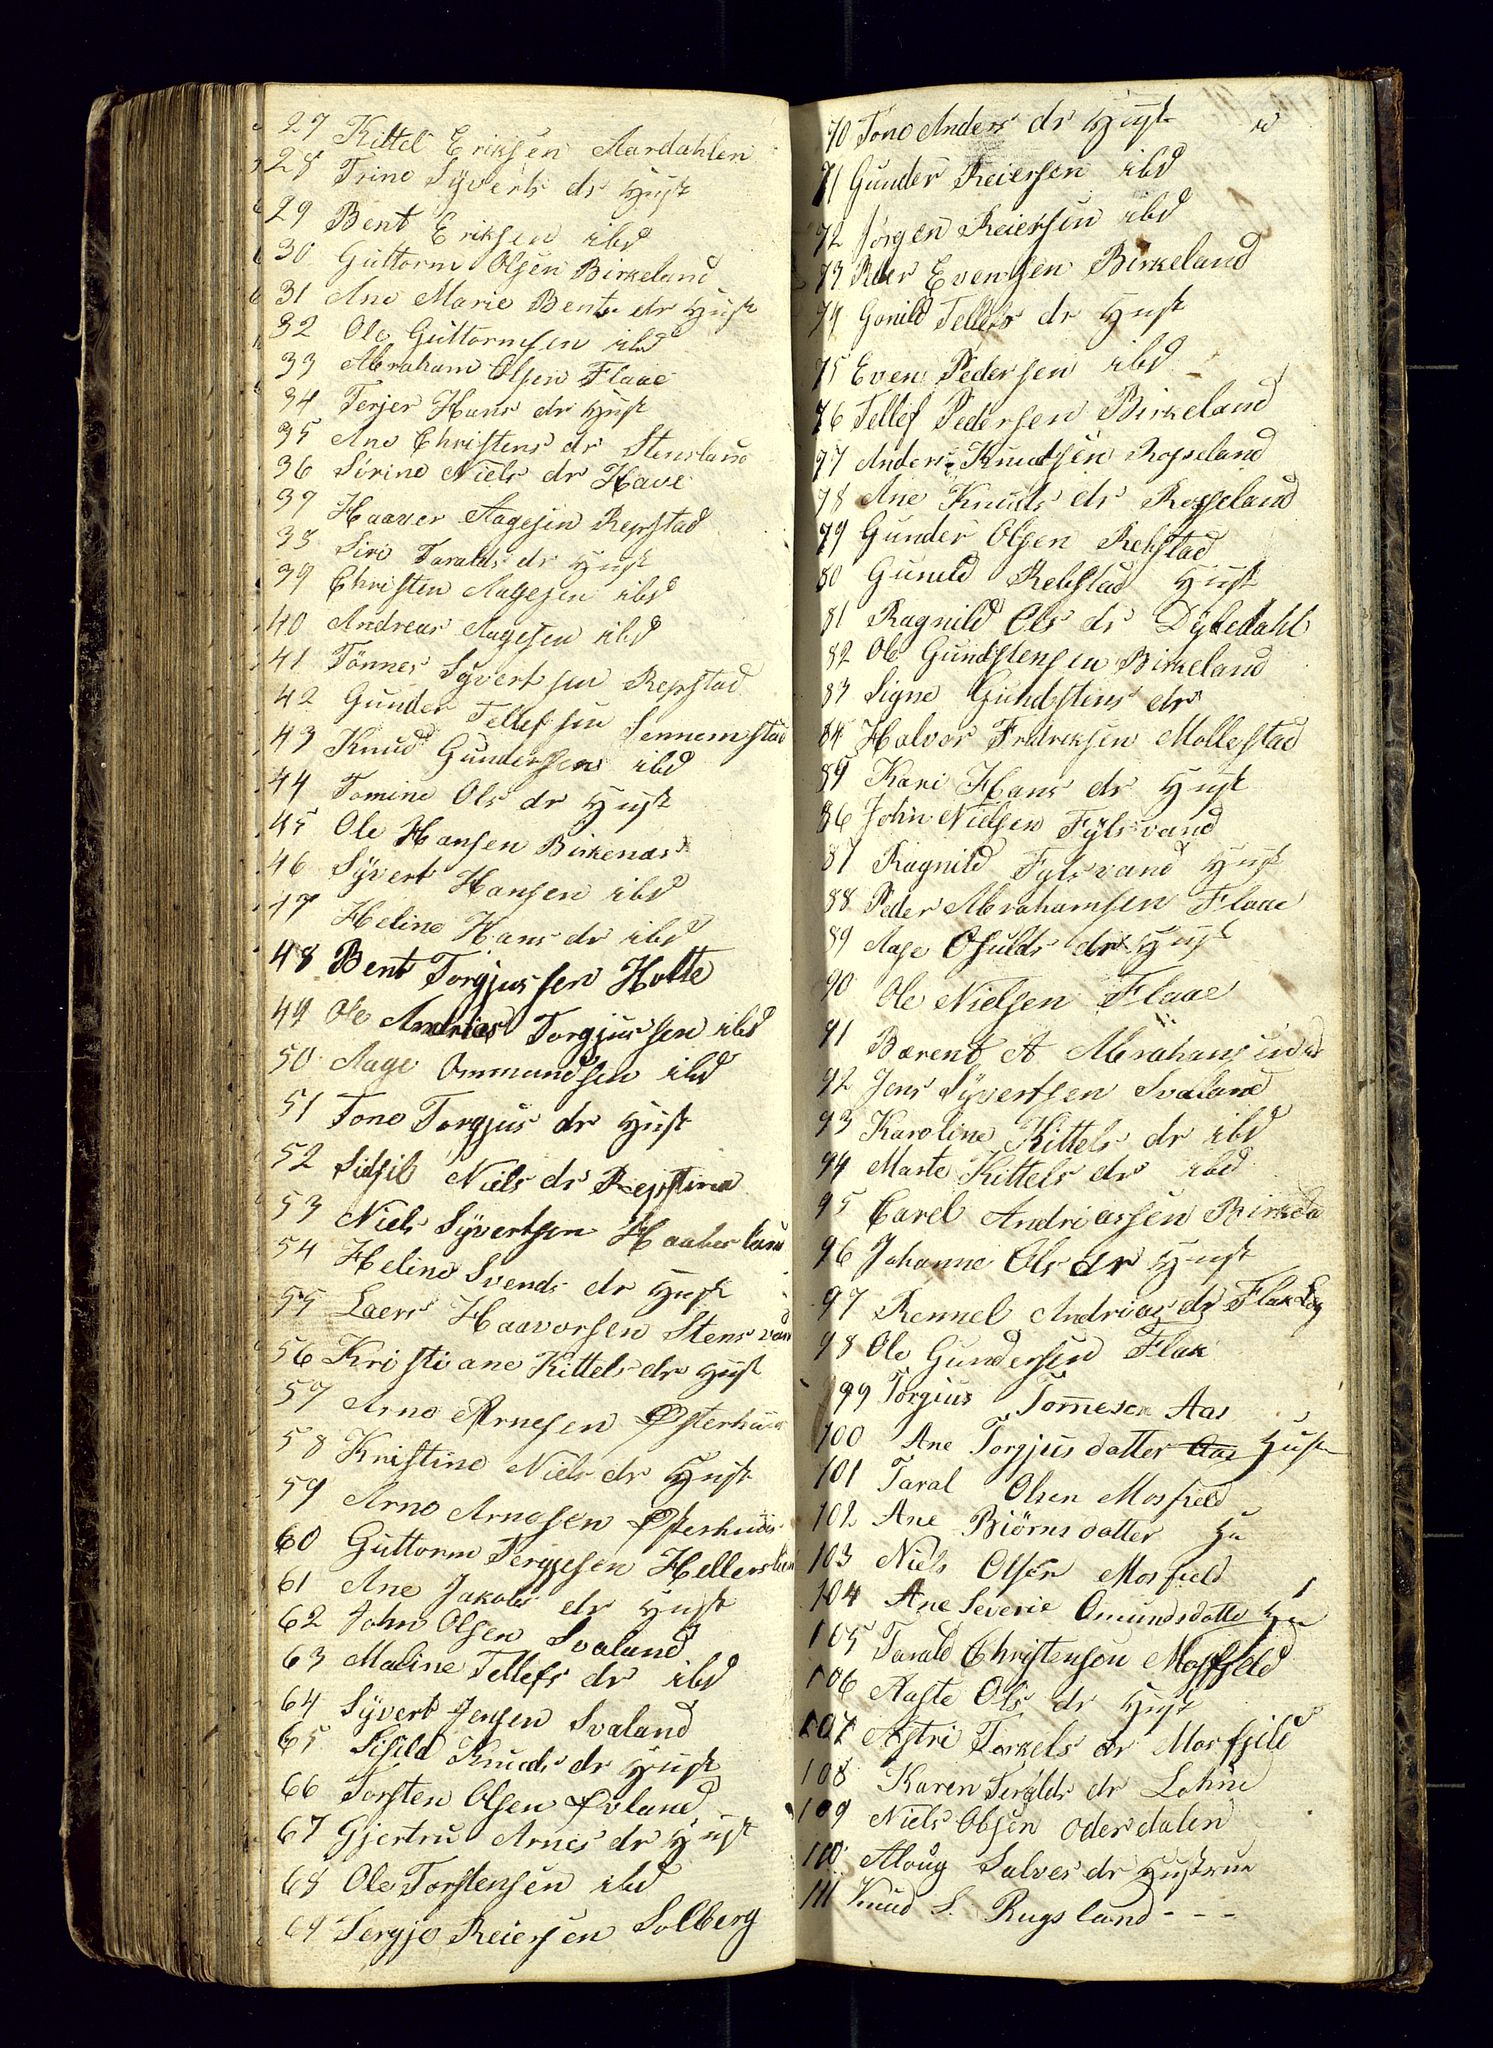 27 Kittel Eriksen Aardahlen
28 Trine Syverts dr Hust
29 Bent Eriksen ibd
30 Guttorm Olsen Birkeland
31 Ane Marie Bents dr Hust
32 Ole Guttormsen ibd
33 Abraham Olsen Flaae
34 Terjer Hans dr Hust
35 Ane Christens dr Stensland
36 Sirine Niels dr Have
37 Haaver Aagesen Repstad
38 Siri Taralds dr Hust
39 Christen Aagesen ibd
40 Andreas Aagesen ibd
41 Tönnes Syvertsen Repstad
42 Gunder Tellefsen Sennemstad
43 Knud Gundersen ibd
44 Tomine Ols dr Hust
45 Ole Hansen Birkenæs
46 Syvert Hansen ibd
47 Heline Hans dr ibd
48 Bent Torgjussen Holte
49 Ole Andrias Torgjussen ibd
50 Aage Ommundsen ibd
51 Tone Torgjus dr Hust
52 Sidsil Niels dr
53 Niels Syvertsen Haabesland
54 Heline Svends dr Hust
55 Laers Haavorsen Stensvan
56 Kristiane Kittels dr Hust
57 Arne Arnesen Østerhuus
58 Kristine Niels dr Hust
59 Arne Arnesen Østerhuus
60 Guttorm Tergjesen
61 Ane Jakobs dr Hust
62 John Olsen Svaland
63 Maline Tellefs dr ibd
64 Syvert Jensen Svaland
65 Sisild Knuds dr Hust
66 Torsten Olsen Øvland
67 Gjertru Arnes dr Hust
68 Ole Torstensen ibd
69 Tergje Reiersen Solberg
70 Tone Anders dr Hust
71 Gunder Reiersen ibd
72 Jörgen Reiersen ibd
73 Peder Evensen Birkeland
74 Gonild Tellefs dr Hust
75 Even Pedersen ibd
76 Tellef Pedersen Birkeland
77 Anders Knudsen Rosseland
78 Ane Knuds dr Rosseland
79 Gunder Olsen Rebstad
80 Gunild Rebstad Hust
81 Ragnild Ols dr Dybedahl
82 Ole Gundstensen Birkeland
83 Signe Gundstens dr
84 Halvor Fredriksen Mollestad
85 Kari Hans dr Hust
86 John Nielsen Fylsvand
87 Ragnild Fylsvand Hust
88 Peder Abrahamsen Flaae
89 Aase Osulds dr Hust
90 Ole Nielsen Flaae
91 Bærent A Abrahamsen
92 Jens Syvertsen Svaland
93 Karoline Kittels dr ibd
94 Marte Kittels dr ibd
95 Carel Andriassen
96 Johanne Ols dr Hust
97 Rennel Andrias dr
98 Ole Gundersen Flak
99 Torgius Tomesen Aas
100 Ane Torgjusdatter Aas Hust
101 Taral Olsen Mosfield
102 Ane Biörnsdatter Hu
103 Niels Olsen Mosfield
104 Ane Severie Omundsdatte Hu
105 Tarald Christensen Mosfjeld
106 Aaste Ols dr Hust
107 Astri Torkels dr Mosfjeld
108 Karen Teralds dr
109 Niels Olsen Oderdalen
110 Aloug Salves dr Hustrue
111 Knud S. Rugsland - - -